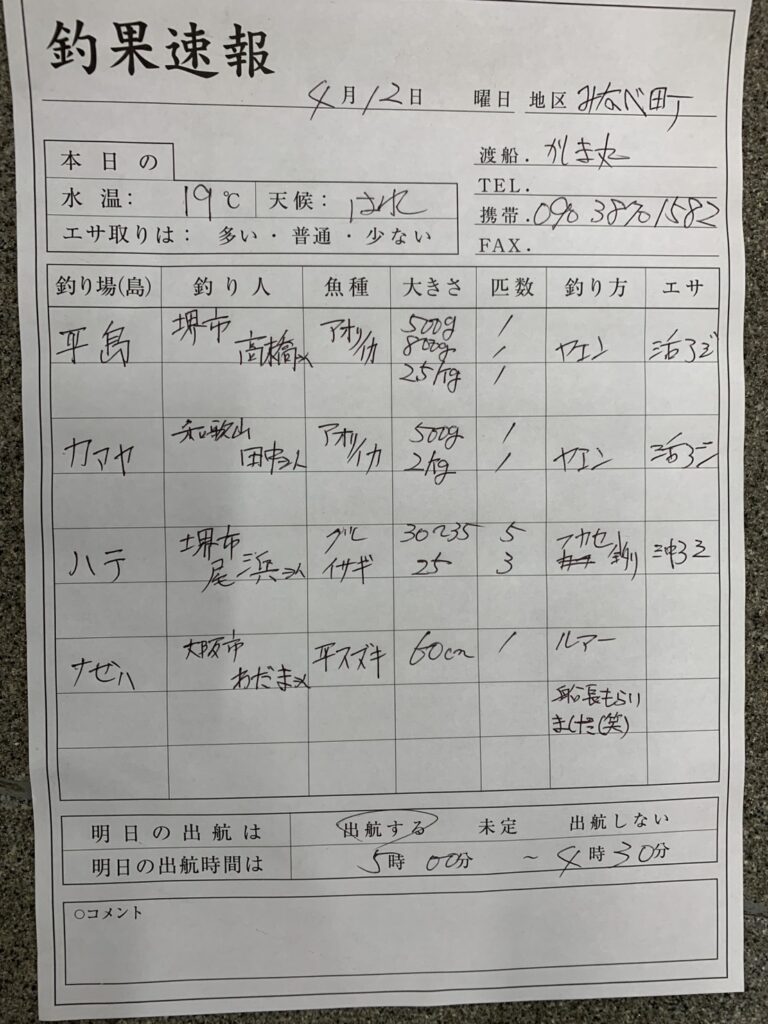 釣果速報
4月12日 曜日 地区 みなべ町
本日の
水温: 19℃ 天候: はれ
エサ取りは: 多い・普通・少ない
渡船. かしま丸
TEL.
携帯. 090 3870 1582
FAX.
釣り場(島) 釣り人 魚種 大きさ 匹数 釣り方 エサ
平島 堺市 アオリイカ 500g 1 ヤエン 活アジ
高橋さん 800g 1
2.5kg 1
カマヤ 和歌山 アオリイカ 500g 1 ヤエン 活アジ
田中さん 2kg 1
ハテ 堺市 グレ 30~35 5 フカセ釣り
尾浜さん イサギ 25 3
ナゼハ 大阪市 平スズキ 60cm 1 ルアー
わだまさん
船長もらい
ました(笑)
明日の出航は 出航する 未定 出航しない
明日の出航時間は 5時00分 ~ 4時30分
○コメント